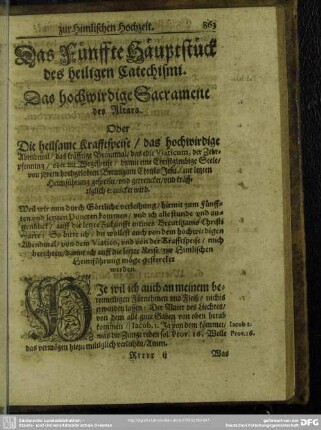 zur Himlischen Hochzeit. 863
Das Fünffte Häuptstück
des heiligen Catechismi.
Das hochwirdige Sacrament
des Altars.
Oder
Die heilsame Krafftspeise / das hochwirdige
Abendmal / das kräfftige / das edle Viaticum, der Zehr-
pfenning / oder die Wegespeise / damit eine Christgleubige Seele /
von jhrem hochgelobten Breutigam Christo Jesu / zur letzen
Heimführung gespeiset / und getrencket / und kräff-
tiglich erquicket wird.
Weil wir nun durch Göttliche verleihung / hiermit zum Fünff-
ten und letzten Puncten kommen / und ich alle stunde und au-
genblick / auff die letzte Zukunfft meines Breutigams Christi
warte / So bitte ich / du wollest auch von dem hochwirdigen
Abendmal / von dem Viatico, und von der Krafftspeise / mich
berichten / damit ich auff die letzte Reise zur Himlischen
Heimführung möge gestercket
werden.
Je wil ich auch an meinem
willigen und Fleiß / nichts
erwinden lassen: Der Vater des Liechtes /
von dem alle gute Gaben von oben herab
kommen / Jacob. 1. Ja von dem kömmet / Jacob 1.
was die Zunge reden sol. Prov. 16. Wolle Prov. 16.
das vermögen hiezu miltiglich verleihen / Amen.
Rrrr ij Was